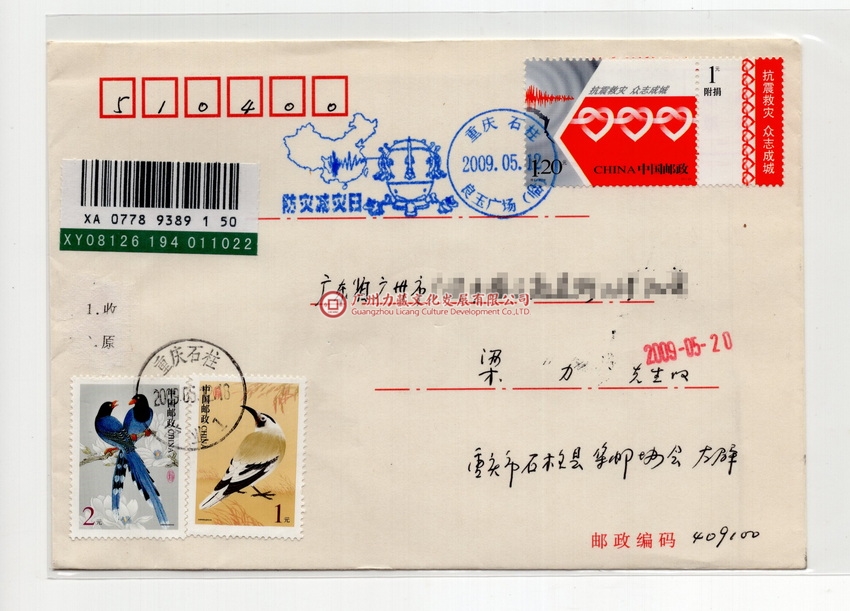 510400
抗震救灾 众志成城
1元
附捐
抗震救灾 众志成城
CHINA中国邮政
1.20元
重庆 石柱
2009.05.12
良玉广场(临)
防灾减灾日
XA 0778 9389 1 50
XY08126 194 011022
广东省广州市
广州力藏文化发展有限公司
Guangzhou Licang Culture Development Co.,LTD
1.收
原
2009-05-20
梁 力 先生收
重庆石柱
2009.05.
中国邮政 CHINA
2元
中国邮政 CHINA
1元
重庆市石柱县集邮协会
邮政编码 409100